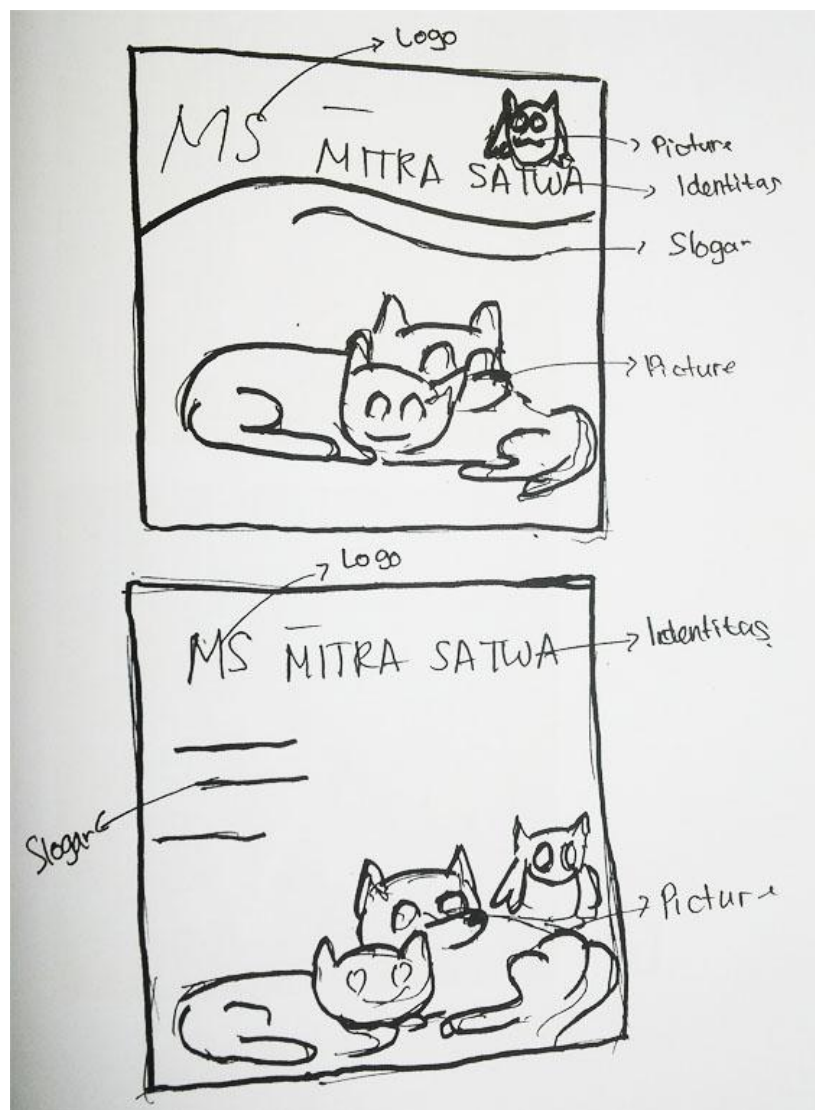 Logo
MS MITRA SATWA
Picture
Identitas
Slogan
Picture
Logo
MS MITRA SATWA
Identitas
Slogan
Picture